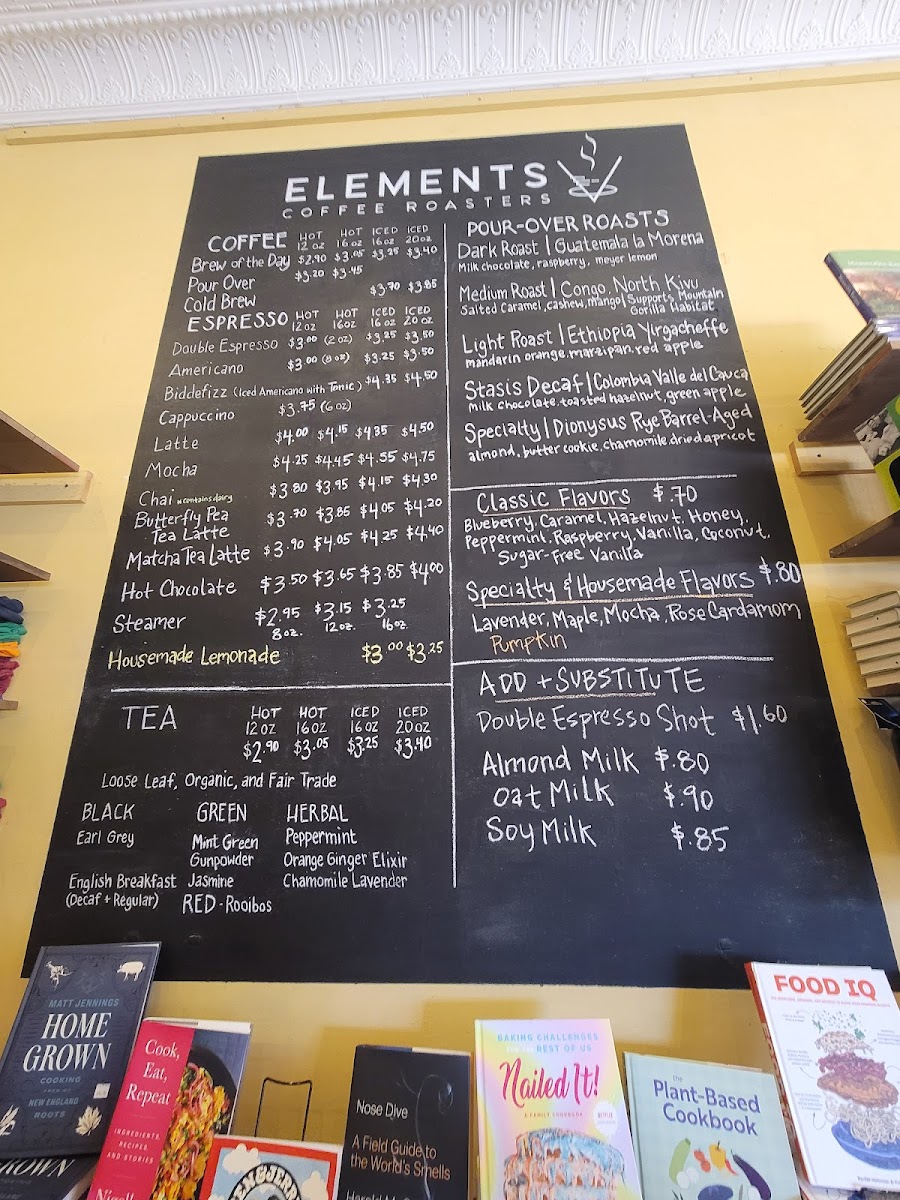 ELEMENTS
COFFEE ROASTERS
COFFEE HOT 12 oz HOT 16 oz ICED 16 oz ICED 20 oz
Brew of the Day $2.90 $3.05 $3.25 $3.40
Pour Over $3.20 $3.45
Cold Brew $3.70 $3.85
ESPRESSO HOT 12 oz HOT 16 oz ICED 16 oz ICED 20 oz
Double Espresso $3.00 (2 oz) $3.25 $3.50
Americano $3.00 (8 oz) $3.25 $3.50
Biddefizz (Iced Americano with Tonic) $4.35 $4.50
Cappuccino $3.75 (6 oz)
Latte $4.00 $4.15 $4.35 $4.50
Mocha $4.25 $4.45 $4.55 $4.75
Chai *contains dairy $3.80 $3.95 $4.15 $4.30
Butterfly Pea
Tea Latte $3.70 $3.85 $4.05 $4.20
Matcha Tea Latte $3.90 $4.05 $4.25 $4.40
Hot Chocolate $3.50 $3.65 $3.85 $4.00
Steamer $2.95 $3.15 $3.25
8 oz. 12 oz. 16 oz.
Housemade Lemonade $3.00 $3.25
TEA HOT 12 OZ HOT 16 OZ ICED 16 OZ ICED 20 OZ
$2.90 $3.05 $3.25 $3.40
Loose Leaf, Organic, and Fair Trade
BLACK GREEN HERBAL
Earl Grey Mint Green Peppermint
Gunpowder Orange Ginger Elixir
English Breakfast Jasmine Chamomile Lavender
(Decaf + Regular) RED - Rooibos
POUR-OVER ROASTS
Dark Roast | Guatemala la Morena
Milk chocolate, raspberry, meyer lemon
Medium Roast | Congo, North Kivu
Salted Caramel, cashew, mango | Supports Mountain
Gorilla Habitat
Light Roast | Ethiopia Yirgacheffe
mandarin orange, marzipan, red apple
Stasis Decaf | Colombia Valle del Cauca
milk chocolate, toasted hazelnut, green apple
Specialty | Dionysus Rye Barrel-Aged
almond, butter cookie, chamomile dried apricot
Classic Flavors $.70
Blueberry, Caramel, Hazelnut, Honey,
Peppermint, Raspberry, Vanilla, Coconut,
Sugar-Free Vanilla
Specialty & Housemade Flavors $.80
Lavender, Maple, Mocha, Rose Cardamom
Pumpkin
ADD + SUBSTITUTE
Double Espresso Shot $1.60
Almond Milk $.80
Oat Milk $.90
Soy Milk $.85
MATT JENNINGS
HOME
GROWN
COOKING
NEW ENGLAND
ROOTS
Cook,
Eat,
Repeat
INGREDIENTS,
RECIPES,
AND STORIES
Nose Dive
A Field Guide to
the World's Smells
BAKING CHALLENGES
REST OF US
Nailed It!
A FAMILY COOKBOOK
NETFLIX
the
Plant-Based
Cookbook
FOOD IQ